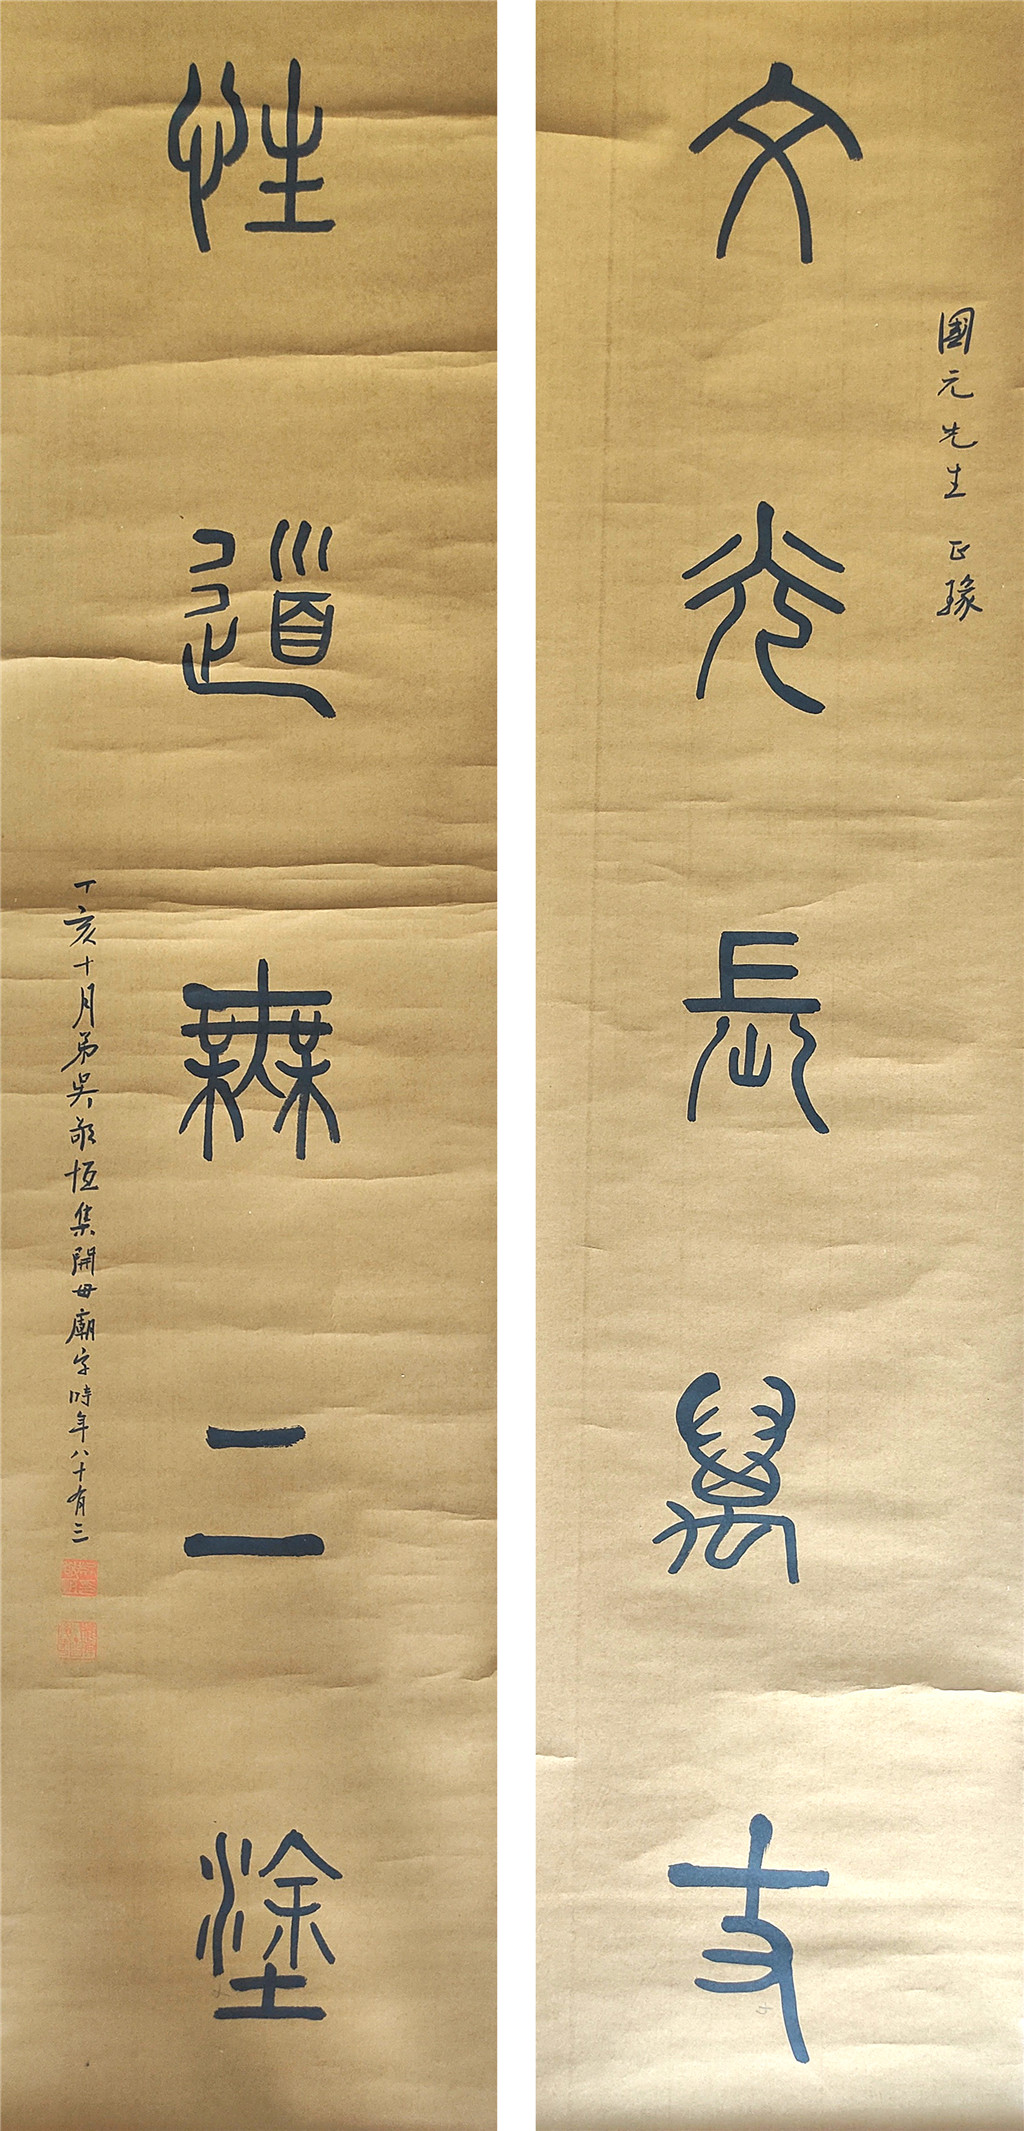 國元先生 正
文光長萬丈
性道無二塗
丁亥十月弟吳敬恆集開母廟字時年八十有三